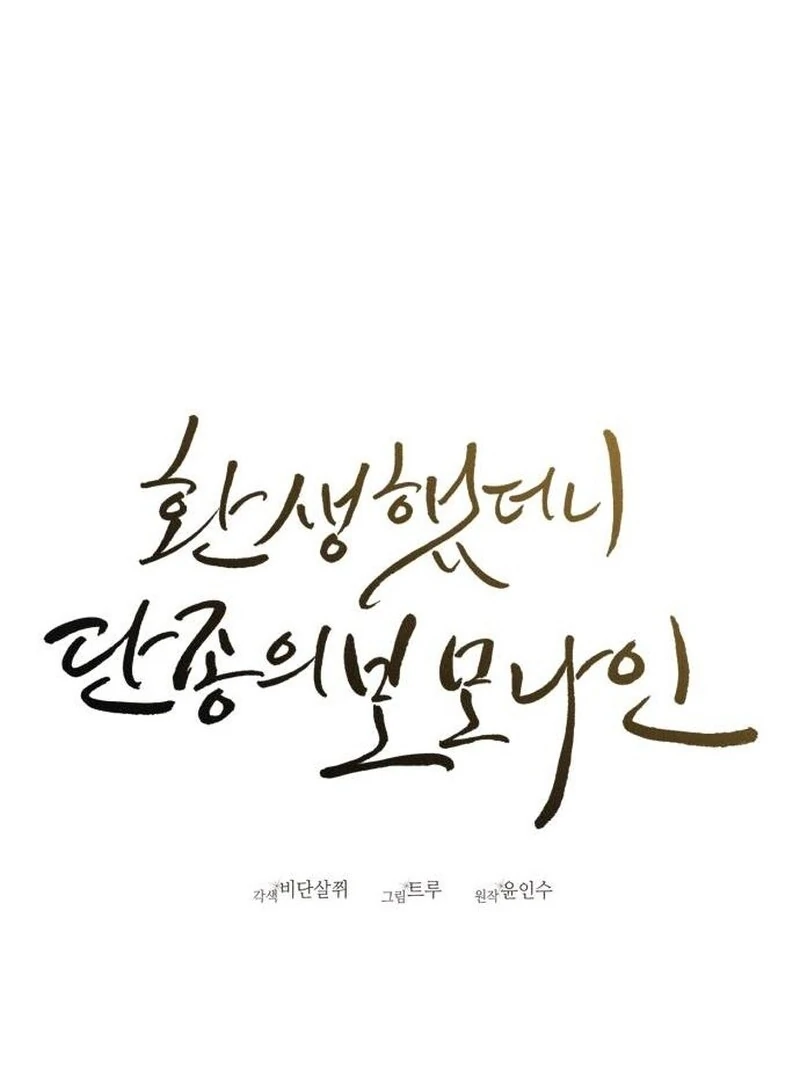 환생했더니
단종의 보모나인
각색 비단살쮜 그림 트루 원작 윤인수